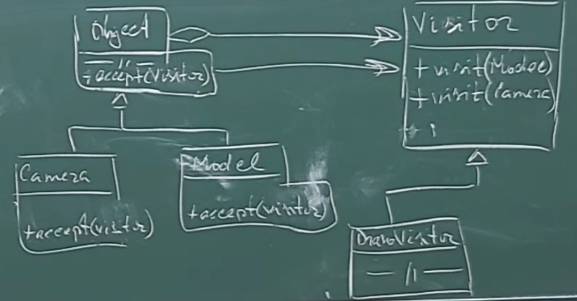 Object
+accept(Visitor)
Visitor
+visit(Model)
+visit(Camera)
Camera
+accept(visitor)
Model
+accept(visitor)
DrawVisitor
— // —